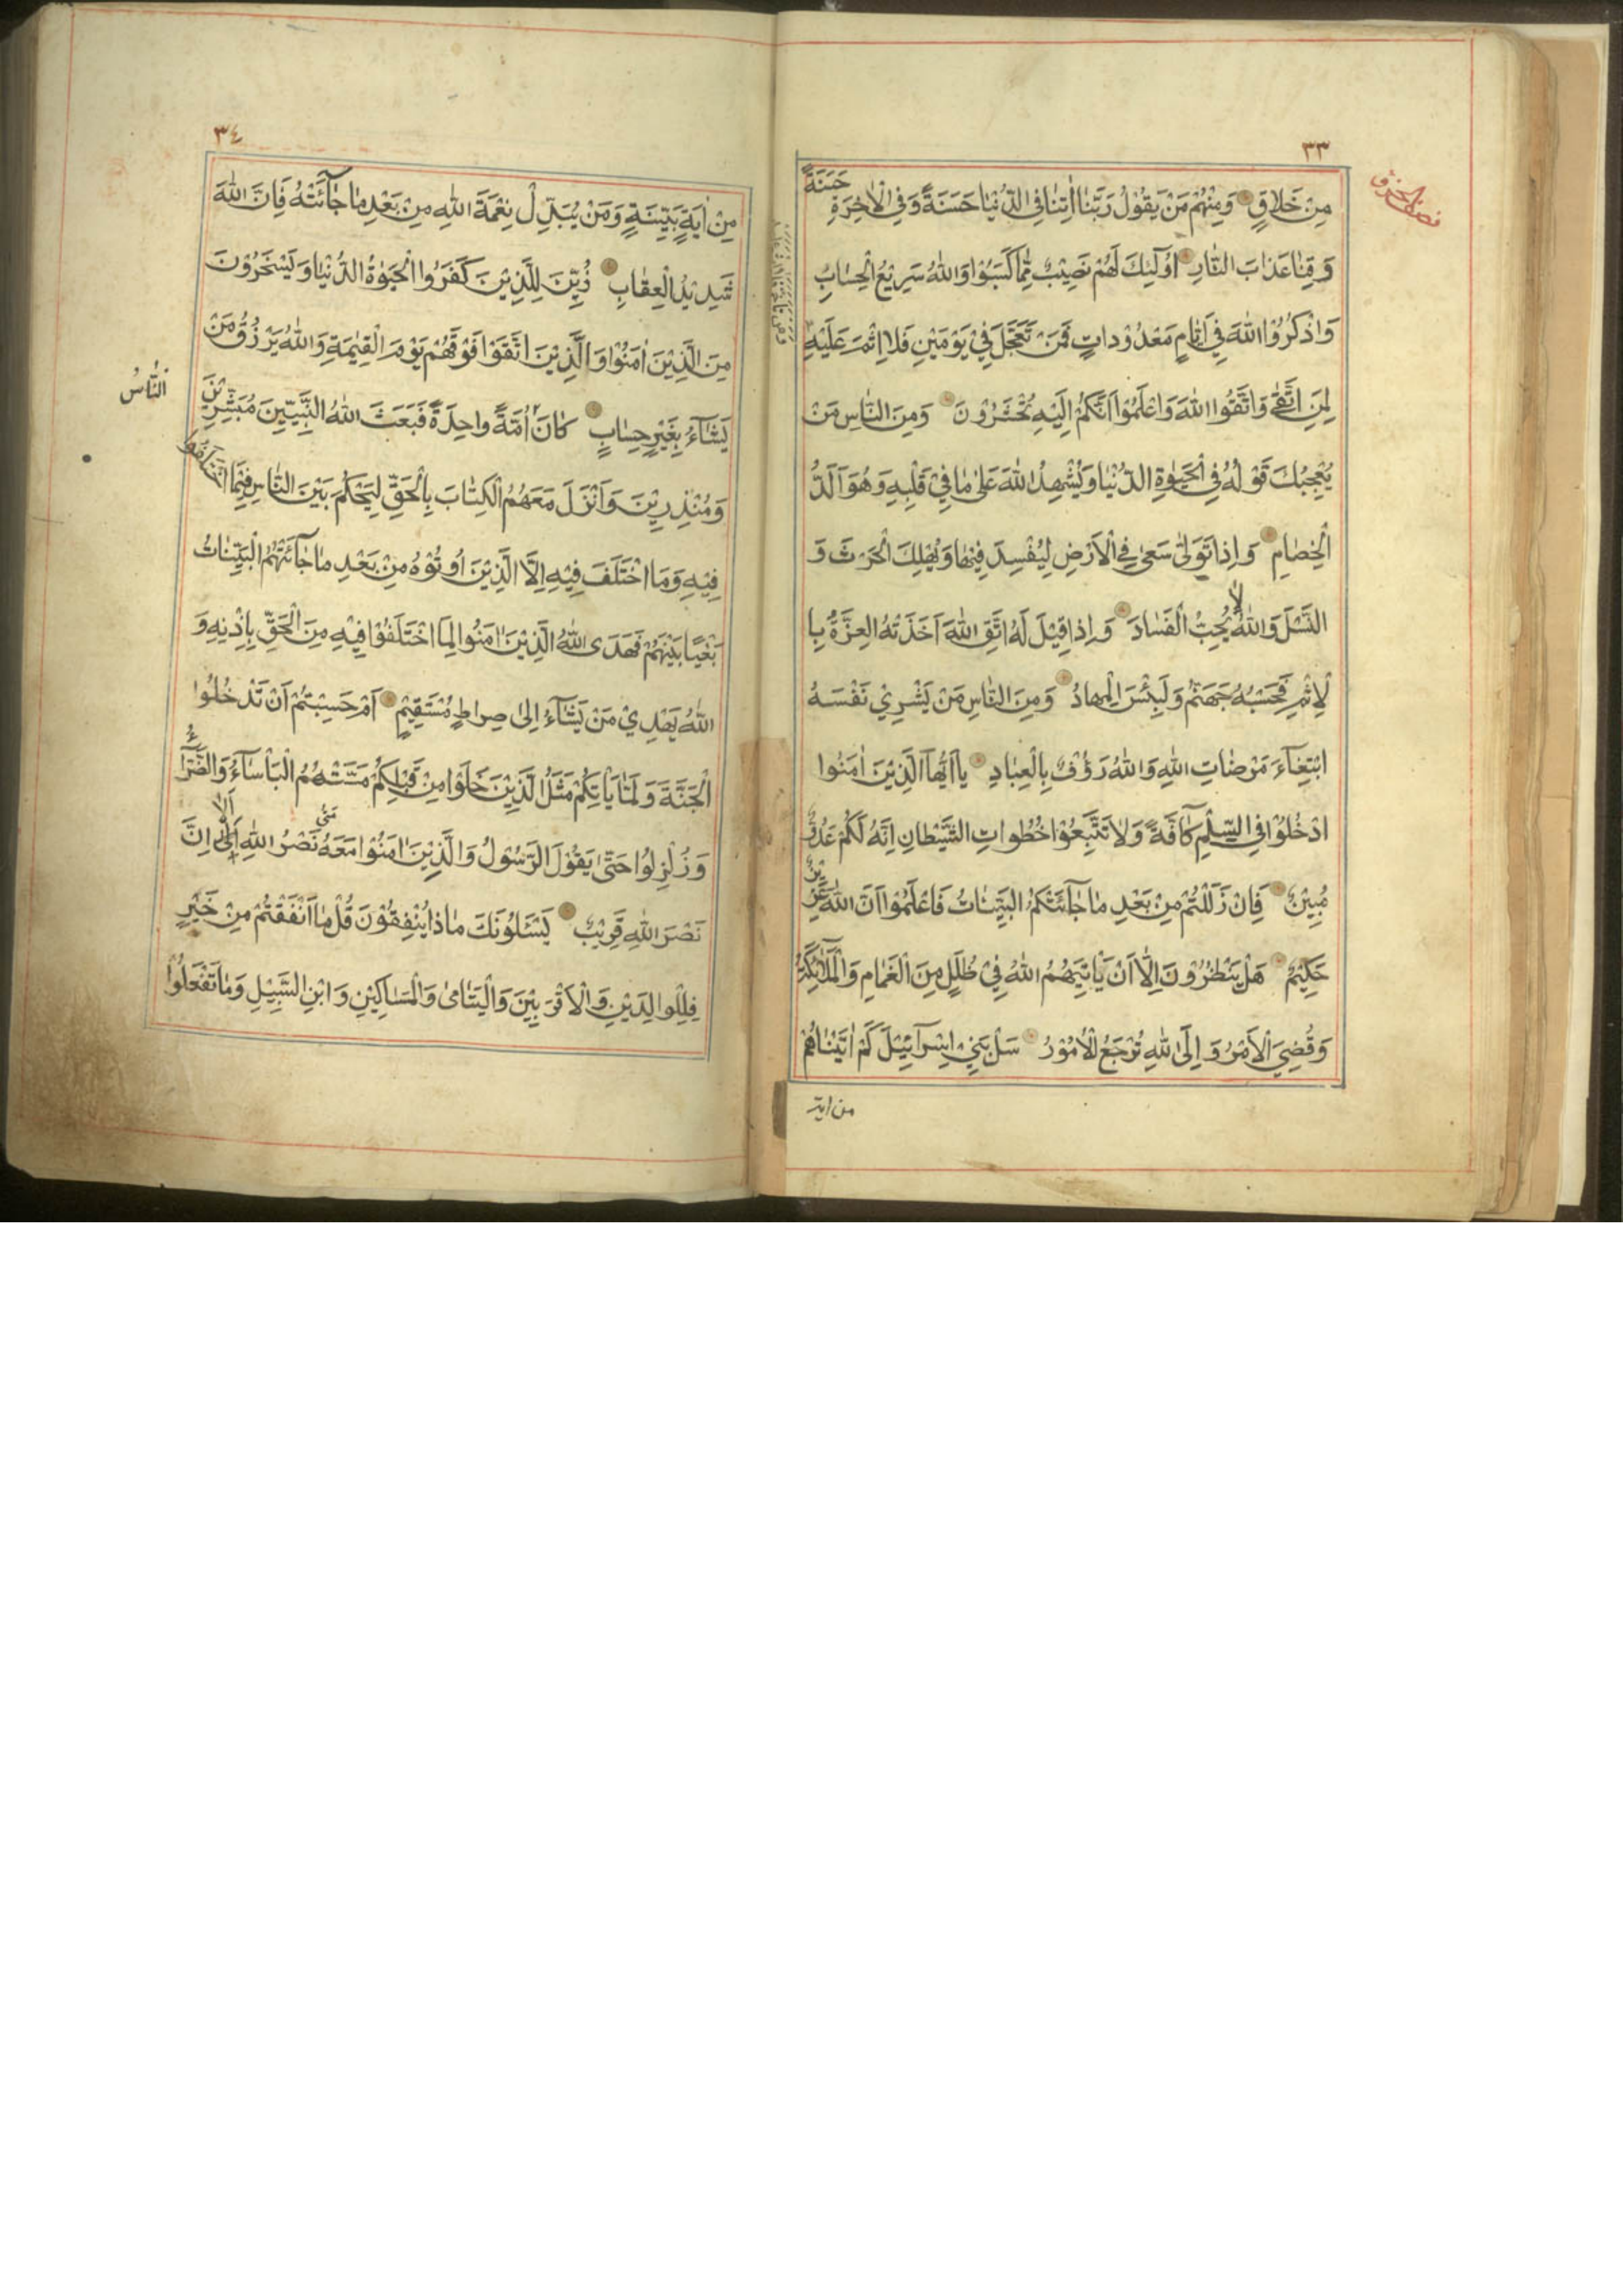 ٣٣
مِنْ خَلاقٍ وَمِنْهُمْ مَنْ يَقُوْلُ رَبَّنا اٰتِنا فِي الدُّنْيا حَسَنَةً وَفِي الْاٰخِرَةِ حَسَنَةً
وَقِنا عَذابَ النّارِ اُولٰٓئِكَ لَهُمْ نَصِيْبٌ مِمّا كَسَبُوْا وَاللهُ سَرِيْعُ الْحِسابِ
وَاذْكُرُوْا اللهَ فِيْ اَيّامٍ مَعْدُوْداتٍ فَمَنْ تَعَجَّلَ فِيْ يَوْمَيْنِ فَلا اِثْمَ عَلَيْهِ
لِمَنِ اتَّقٰى وَاتَّقُوا اللهَ وَاعْلَمُوْا اَنَّكُمْ اِلَيْهِ تُحْشَرُوْنَ وَمِنَ النّاسِ مَنْ
يُعْجِبُكَ قَوْلُهُ فِي الْحَيٰوةِ الدُّنْيا وَيُشْهِدُ اللهَ عَلٰى ما فِيْ قَلْبِهِ وَهُوَ اَلَدُّ
الْخِصامِ وَاِذا تَوَلّٰى سَعٰى فِي الْاَرْضِ لِيُفْسِدَ فِيْها وَيُهْلِكَ الْحَرْثَ وَ
النَّسْلَ وَاللهُ لا يُحِبُّ الْفَسادَ وَاِذا قِيْلَ لَهُ اتَّقِ اللهَ اَخَذَتْهُ الْعِزَّةُ بِا
لْاِثْمِ فَحَسْبُهُ جَهَنَّمُ وَلَبِئْسَ الْمِهادُ وَمِنَ النّاسِ مَنْ يَشْرِيْ نَفْسَهُ
ابْتِغآءَ مَرْضاتِ اللهِ وَاللهُ رَؤُفٌ بِالْعِبادِ يا اَيُّهَا الَّذِيْنَ اٰمَنُوا
ادْخُلُوْا فِي السِّلْمِ كآفَّةً وَلا تَتَّبِعُوْا خُطُواتِ الشَّيْطانِ اِنَّهُ لَكُمْ عَدُوٌّ
مُبِيْنٌ فَاِنْ زَلَلْتُمْ مِنْ بَعْدِ ما جآئَتْكُمُ الْبَيِّناتُ فَاعْلَمُوْا اَنَّ اللهَ عَزِيْزٌ
حَكِيْمٌ هَلْ يَنْظُرُوْنَ اِلّا اَنْ يَاْتِيَهُمُ اللهُ فِيْ ظُلَلٍ مِنَ الْغَمامِ وَالْمَلٰٓئِكَةُ
وَقُضِيَ الْاَمْرُ وَاِلَى اللهِ تُرْجَعُ الْاُمُوْرُ سَلْ بَنِيْ اِسْرآئِيْلَ كَمْ اٰتَيْناهُمْ
من اية
٣٤
مِنْ اٰيَةٍ بَيِّنَةٍ وَمَنْ يُبَدِّلْ نِعْمَةَ اللهِ مِنْ بَعْدِ ما جآئَتْهُ فَاِنَّ اللهَ
شَدِيْدُ الْعِقابِ زُيِّنَ لِلَّذِيْنَ كَفَرُوا الْحَيٰوةُ الدُّنْيا وَيَسْخَرُوْنَ
مِنَ الَّذِيْنَ اٰمَنُوْا وَالَّذِيْنَ اتَّقَوْا فَوْقَهُمْ يَوْمَ الْقِيٰمَةِ وَاللهُ يَرْزُقُ مَنْ
يَشآءُ بِغَيْرِ حِسابٍ كانَ اُمَّةً واحِدَةً فَبَعَثَ اللهُ النَّبِيّيْنَ مُبَشِّرِيْنَ
النّاسُ
وَمُنْذِرِيْنَ وَاَنْزَلَ مَعَهُمُ الْكِتابَ بِالْحَقِّ لِيَحْكُمَ بَيْنَ النّاسِ فِيْمَا اخْتَلَفُوْا
فِيْهِ وَمَا اخْتَلَفَ فِيْهِ اِلَّا الَّذِيْنَ اُوْتُوْهُ مِنْ بَعْدِ ما جآئَتْهُمُ الْبَيِّناتُ
بَغْيًا بَيْنَهُمْ فَهَدَى اللهُ الَّذِيْنَ اٰمَنُوْا لِمَا اخْتَلَفُوْا فِيْهِ مِنَ الْحَقِّ بِاِذْنِهِ وَ
اللهُ يَهْدِيْ مَنْ يَشآءُ اِلٰى صِراطٍ مُسْتَقِيْمٍ اَمْ حَسِبْتُمْ اَنْ تَدْخُلُوا
الْجَنَّةَ وَلَمّا يَاْتِكُمْ مَثَلُ الَّذِيْنَ خَلَوْا مِنْ قَبْلِكُمْ مَسَّتْهُمُ الْبَاْسآءُ وَالضَّرّآءُ
وَزُلْزِلُوا حَتّٰى يَقُوْلَ الرَّسُوْلُ وَالَّذِيْنَ اٰمَنُوْا مَعَهُ مَتٰى نَصْرُ اللهِ اَلا اِنَّ
نَصْرَ اللهِ قَرِيْبٌ يَسْئَلُوْنَكَ ماذا يُنْفِقُوْنَ قُلْ ما اَنْفَقْتُمْ مِنْ خَيْرٍ
فَلِلْوالِدَيْنِ وَالْاَقْرَبِيْنَ وَالْيَتامٰى وَالْمَساكِيْنِ وَابْنِ السَّبِيْلِ وَما تَفْعَلُوْا